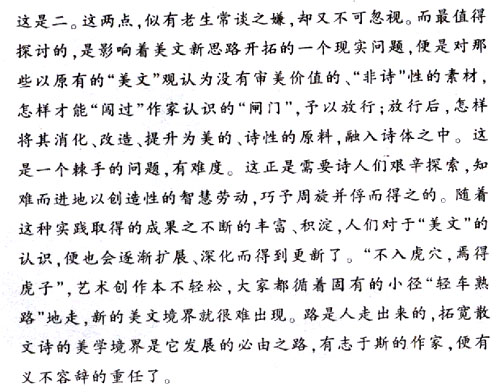 这是二。这两点,似有老生常谈之嫌,却又不可忽视。而最值得
探讨的,是影响着美文新思路开拓的一个现实问题,便是对那
些以原有的“美文”观认为没有审美价值的、“非诗”性的素材,
怎样才能“闯过”作家认识的“闸门”,予以放行;放行后,怎样
将其消化、改造、提升为美的、诗性的原料,融入诗体之中。这
是一个棘手的问题,有难度。这正是需要诗人们艰辛探索,知
难而进地以创造性的智慧劳动,巧予周旋并停而得之的。随着
这种实践取得的成果之不断的丰富、积淀,人们对于“美文”的
认识,便也会逐渐扩展、深化而得到更新了。“不入虎穴,焉得
虎子”,艺术创作本不轻松,大家都循着固有的小径“轻车熟
路”地走,新的美文境界就很难出现。路是人走出来的,拓宽散
文诗的美学境界是它发展的必由之路,有志于斯的作家,便有
义不容辞的重任了。